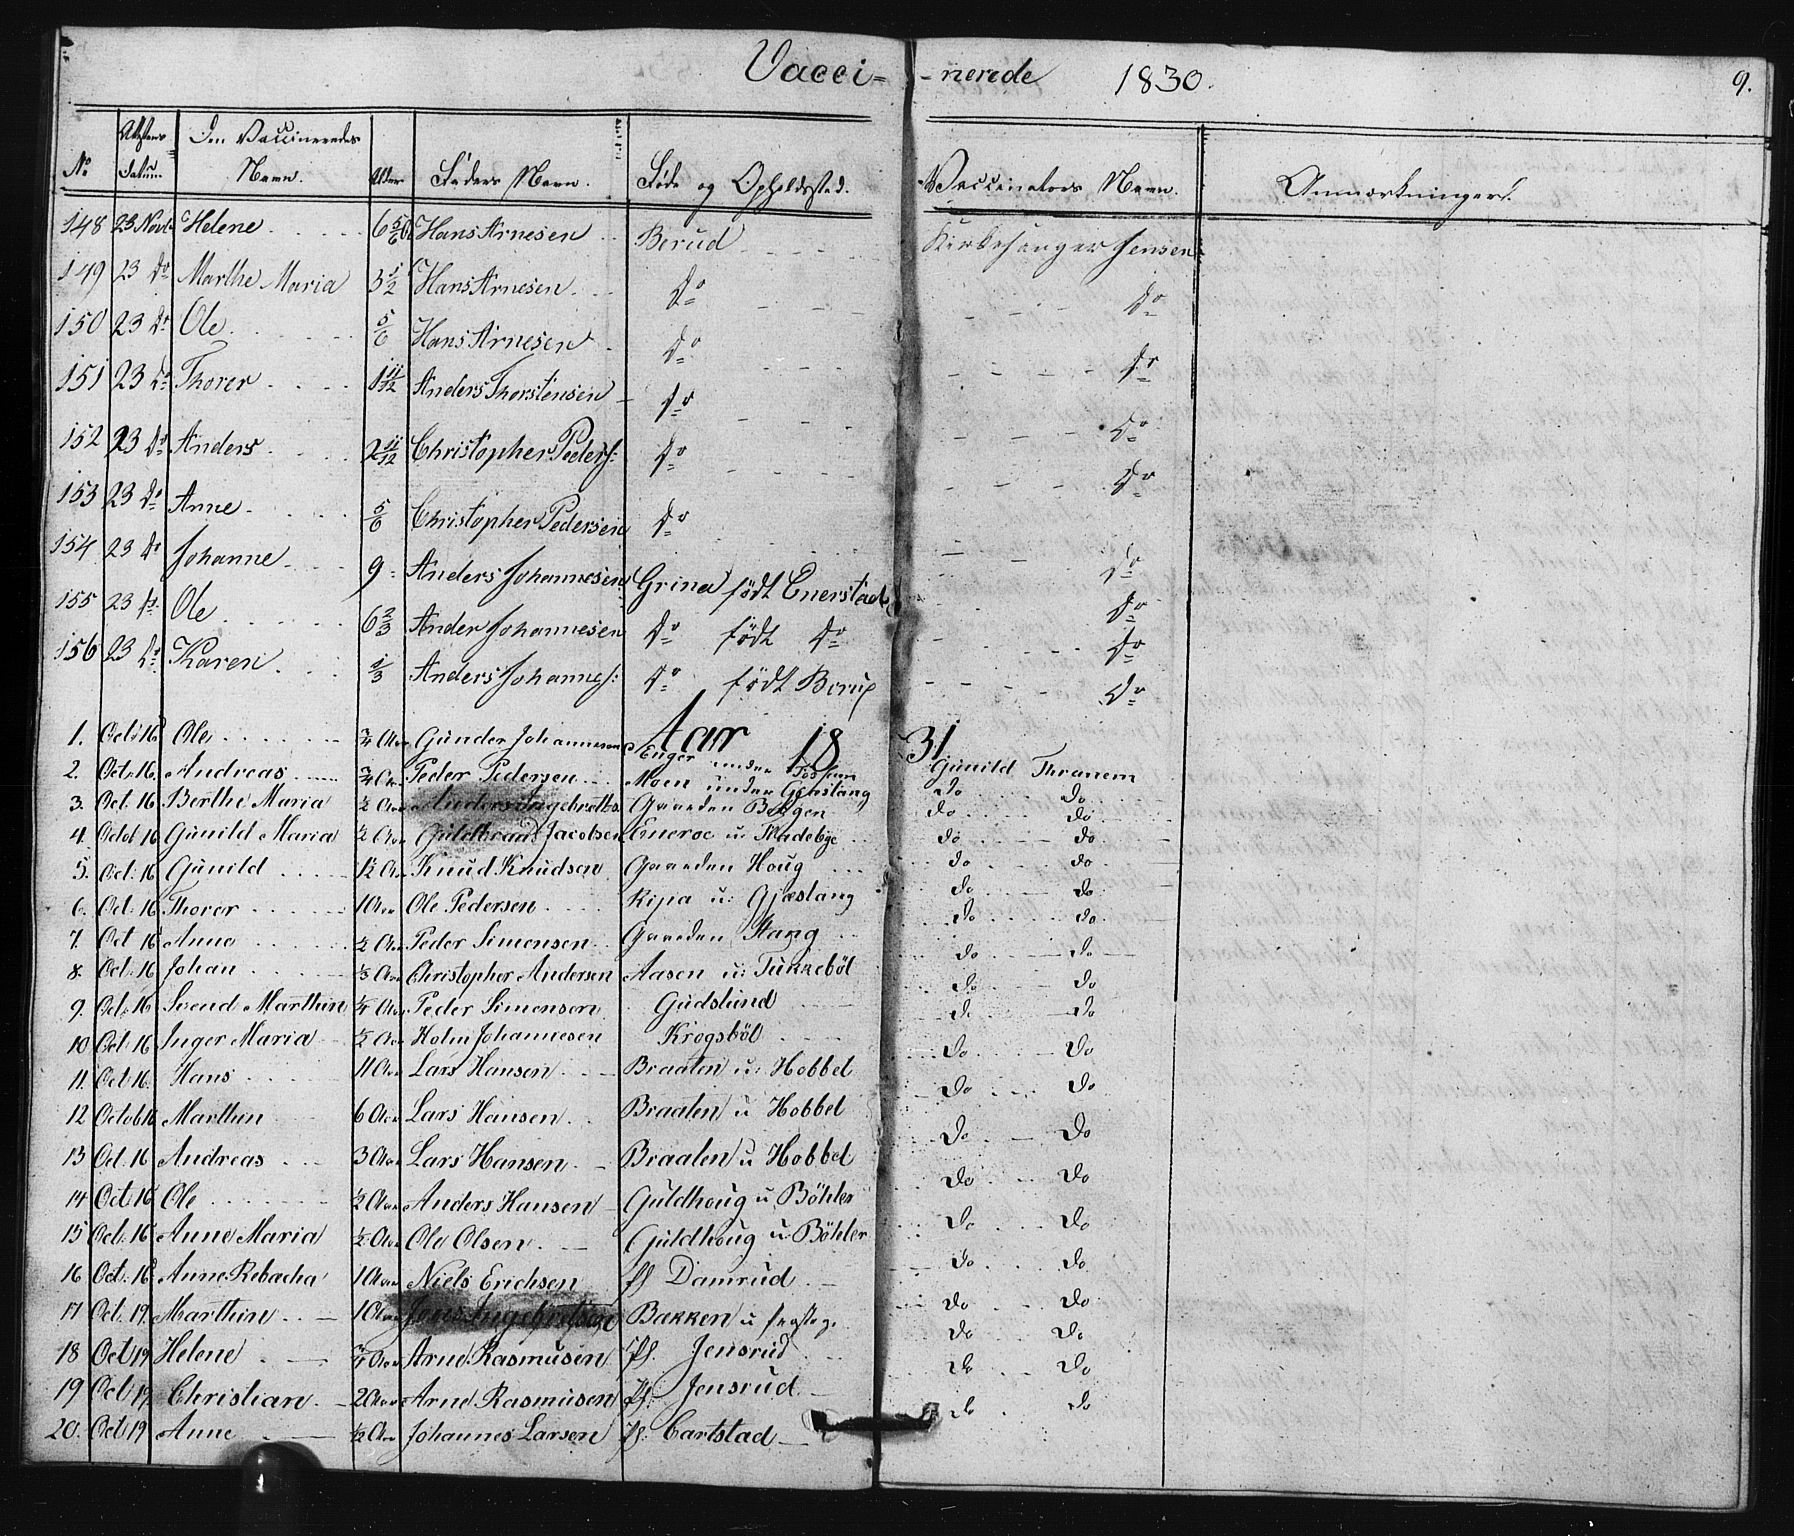 Vacci- -nerede 1830. 9.
No Attestens Datum. Den Vaccineredes Navn. Alder Faders Navn. Føde og Opholdssted. Vaccinators Navn. Anmærkninger.
148 23 Novb Helene 6 5/6 Hans Arnesen Berud Kirkesanger Jensen
149 23 do Marthe Maria 3 1/2 Hans Arnesen do do
150 23 do Ole 5/6 Hans Arnesen do do
151 23 do Thorer 1 11/12 Anders Thorstensen do do
152 23 do Anders 2 11/12 Christopher Peders: do do
153 23 do Anne 5/6 Christopher Pedersen do do
154 23 do Johanne 9 Anders Johannesen Grina født Enerstad do
155 23 do Ole 6 2/3 Ander Johannesen do født do do
156 23 do Karen 1/3 Anders Johannes: do født Berup do
Aar 1831
1. Oct: 16 Ole 3/4 Aar Gunder Johannesen Enger under Gunild Thranem
2. Oct: 16 Andreas 3/4 Aar Peder Pedersen Moen under Gjæslang do do
3. Oct. 16 Berthe Maria 1/2 Aar Anders Ingebretts. Gaarden Borgen do do
4. Octob 16 Gunild Maria 1/2 Aar Guldbrand Jacobsen Eneroe u: Hadelye do do
5. Oct. 16 Gunild 1 1/2 Aar Knud Knudsen Gaarden Houg do do
6. Oct. 16 Thorer 1 Aar Ole Pedersen Ripa u: Gjæslang do do
7. Oct 16 Anne 1/2 Aar Peder Simensen Gaarden Stang do do
8. Oct: 16 Johan 1/3 Aar Christopher Andersen Aasen u: Tukkeböl do do
9. Oct: 16 Svend Marthin 1/4 Aar Peder Simensen Gudslund do do
10 Oct: 16 Inger Maria 1/2 Aar Holm Johannesen Krogsböl do do
11. Oct 16. Hans 11 Aar Lars Hansen Braaten u: Hobbel do do
12 Octob 16 Marthin 6 Aar Lars Hansen Braaten u Hobbel do do
13 Oct. 16 Andreas 3 Aar Lars Hansen Braaten u Hobbel do do
14 Oct 16 Ole 1/2 Aar Anders Hansen Guldhoug u Böhler do do
15 Oct: 16 Anne Maria 1/2 Aar Ole Olsen Guldhoug u Böhler do do
16 Oct: 16 Anne Rebacha 1 Aar Niels Erichsen Pl Damrud do do
17 Oct. 19. Marthin 1 Aar Jens Ingebretsen Bakken u do do
18 Oct 19 Helene 3/4 Aar Arne Rasmusen Pl. Jensrud do do
19 Oct 19 Christian 2 Aar Arne Rasmusen Pl. Jensrud do do
20. Oct 19 Anne 1/2 Aar Johannes Larsen Pl: Cartstad do do